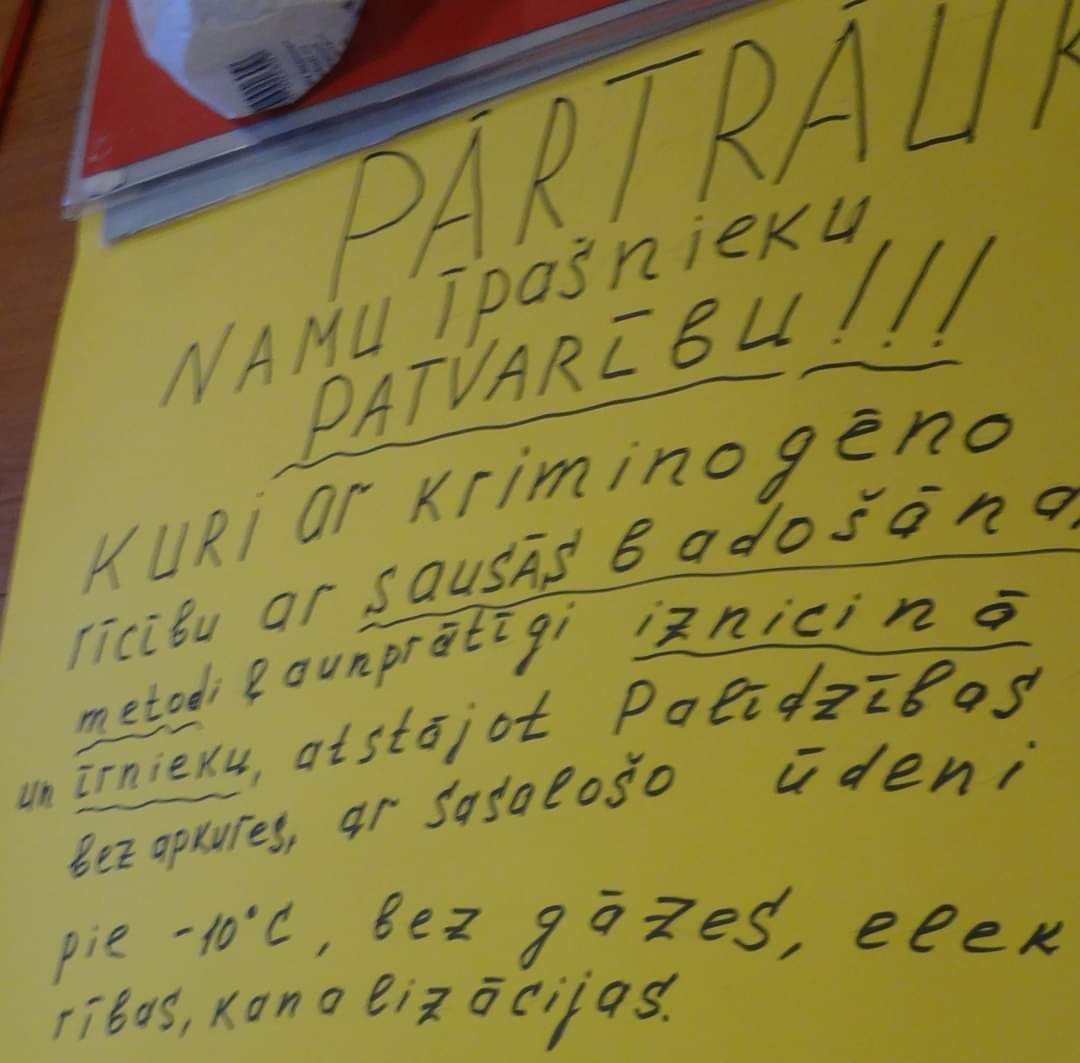 PĀRTRAUK
NAMU īpašnieku
PATVARĪBU!!!
KURI ar kriminogēno
rīcību ar sausās badošāna
metodi ļaunprātīgi iznicinā
un īrnieku, atstājot Palīdzības
bez apkures, ar sasalošo ūdeni
pie -10°C, bez gāzes, elek
rības, kanalizācijas.